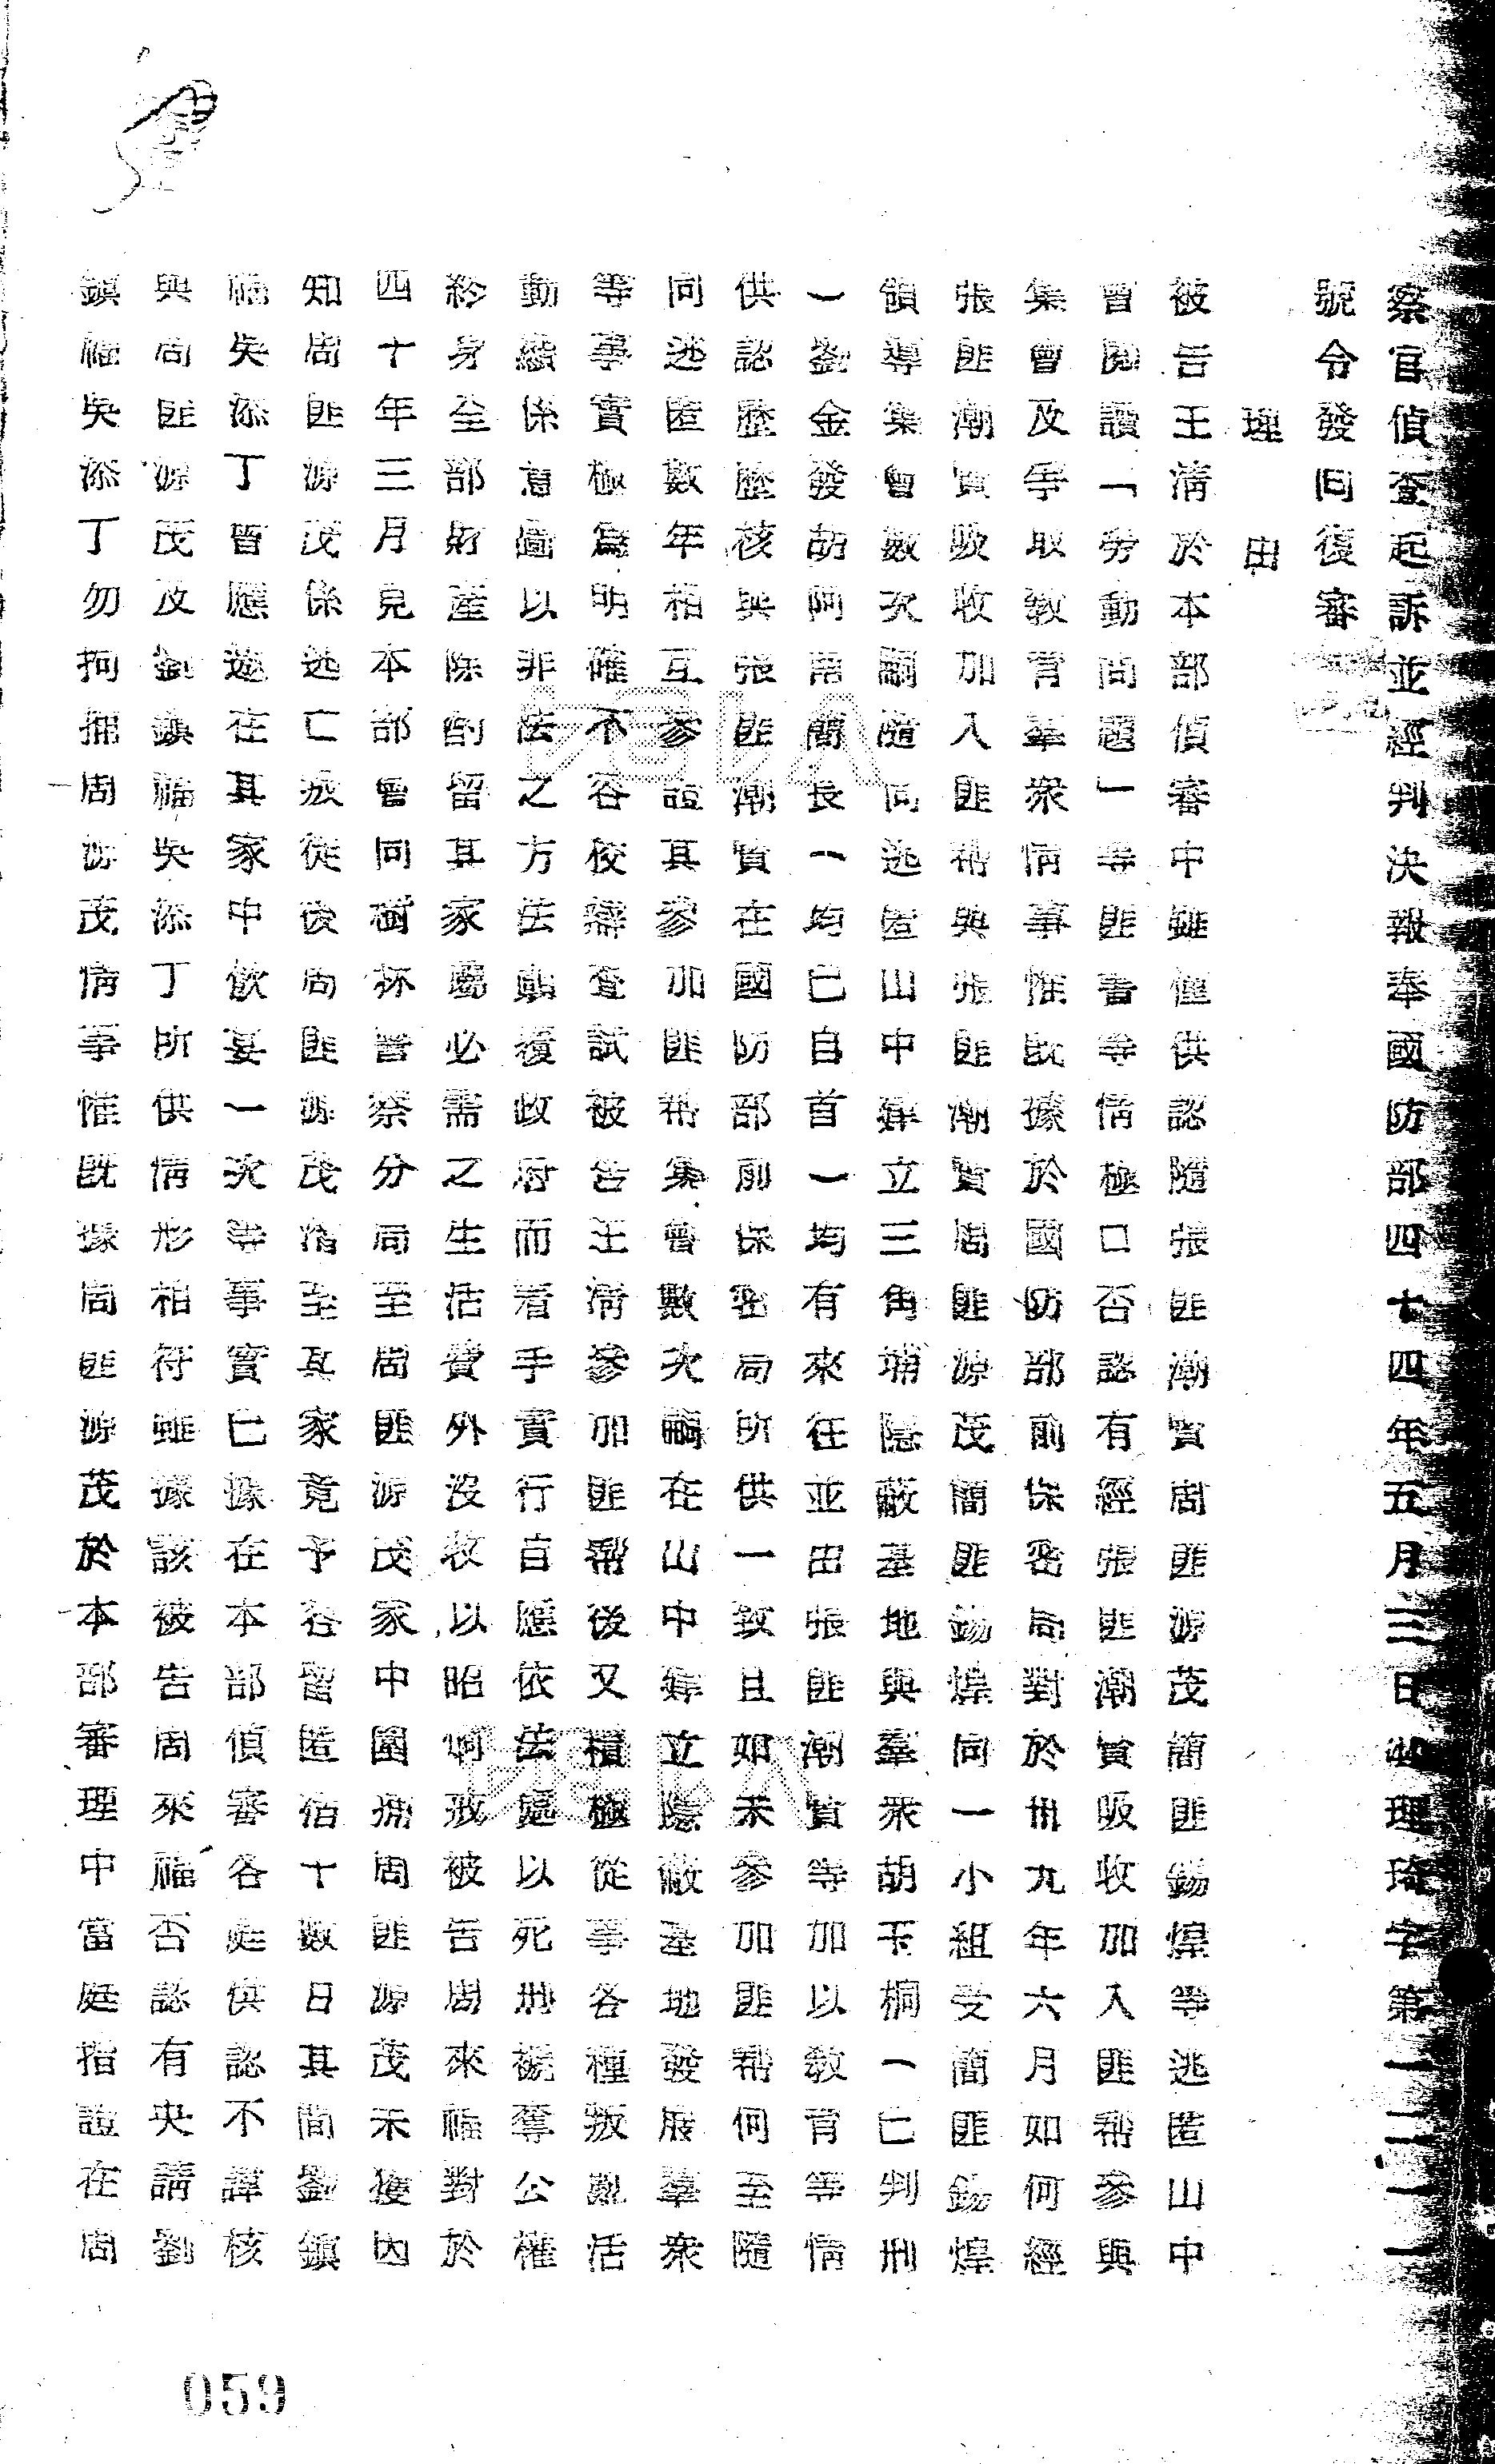 察官偵查起訴並經判決報奉國防部四十四年五月三日理琦字第一二一一
號令發回復審
理由
被告王清於本部偵審中雖供認隨張匪潮賢周匪源茂簡匪錫煌等逃匿山中
曾閱讀「勞動問題」等匪書等情極口否認有經張匪潮賢吸收加入匪幫參與
集會及爭取教育羣眾情事惟既據於國防部前保密局對於卅九年六月如何經
張匪潮賢吸收加入匪幫與張匪潮賢周匪源茂簡匪錫煌同一小組受簡匪錫煌
領導集會數次嗣隨同逃匿山中建立三角埔隱蔽基地與羣眾胡玉桐一已判刑
一劉金發胡阿南簡長一均已自首一均有來往並由張匪潮賢等加以教育等情
供認歷歷核與張匪潮賢在國防部前保密局所供一致且如未參加匪幫何至隨
同逃匿數年相互參證其參加匪幫集會數次嗣在山中建立隱蔽基地發展羣眾
等事實極為明確不容狡辯查試被告王清參加匪幫後又積極從事各種叛亂活
動顯係意圖以非法之方法顛覆政府而着手實行自應依法處以死刑褫奪公權
終身全部財產除酌留其家屬必需之生活費外沒收以昭炯戒被告周來福對於
四十年三月見本部會同樹林警察分局至周匪源茂家中圍捕周匪源茂未獲因
知周匪源茂係逃亡叛徒後周匪源茂潛至其家竟予容留匿宿十數日其間劉鎮
福吳添丁皆應邀在其家中飲宴一次等事實已據在本部偵審各庭供認不諱核
與周匪源茂及劉鎮福吳添丁所供情形相符雖據該被告周來福否認有央請劉
鎮福吳添丁勿拘捕周源茂情事惟既據周匪源茂於本部審理中當庭指證在周
059